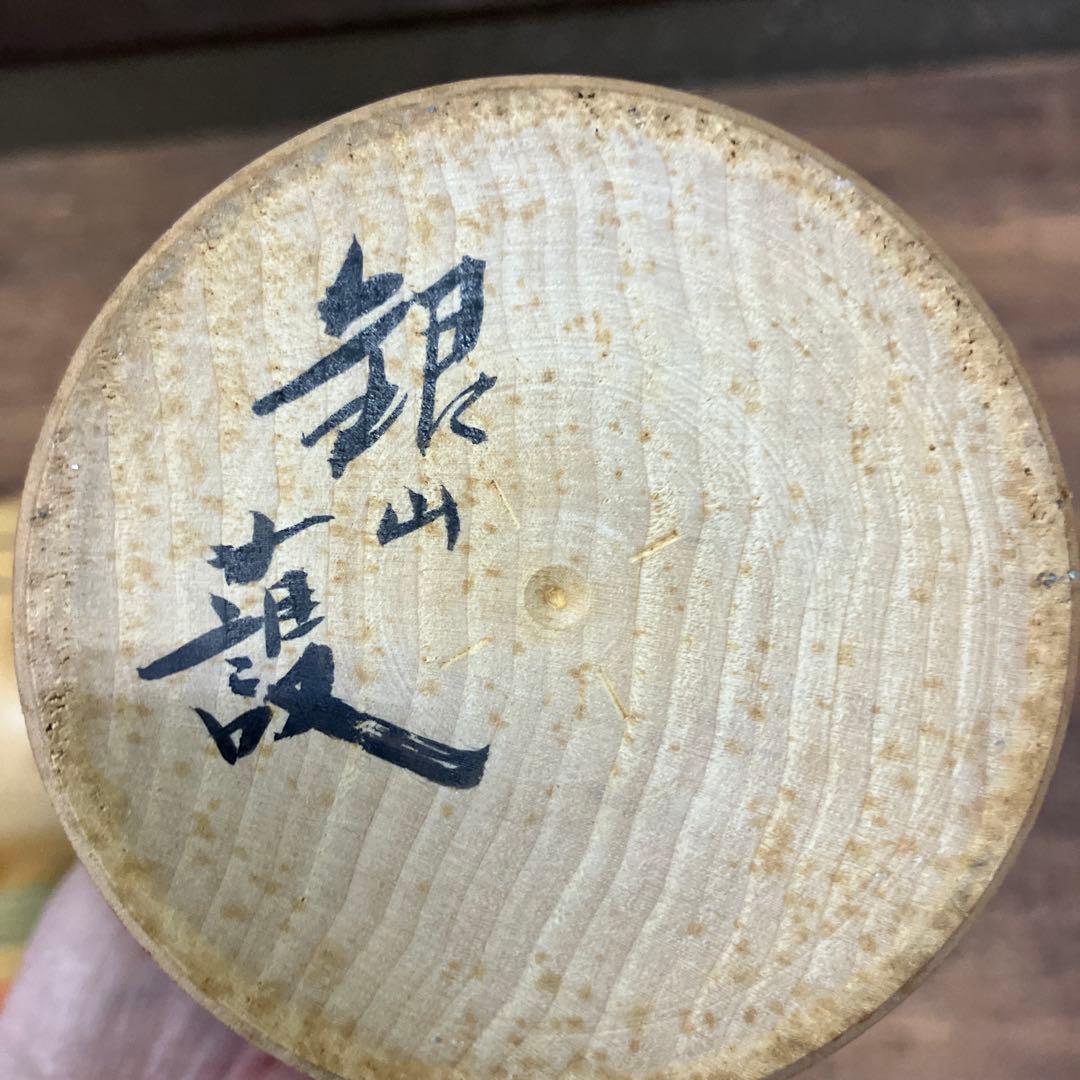 銀山
護